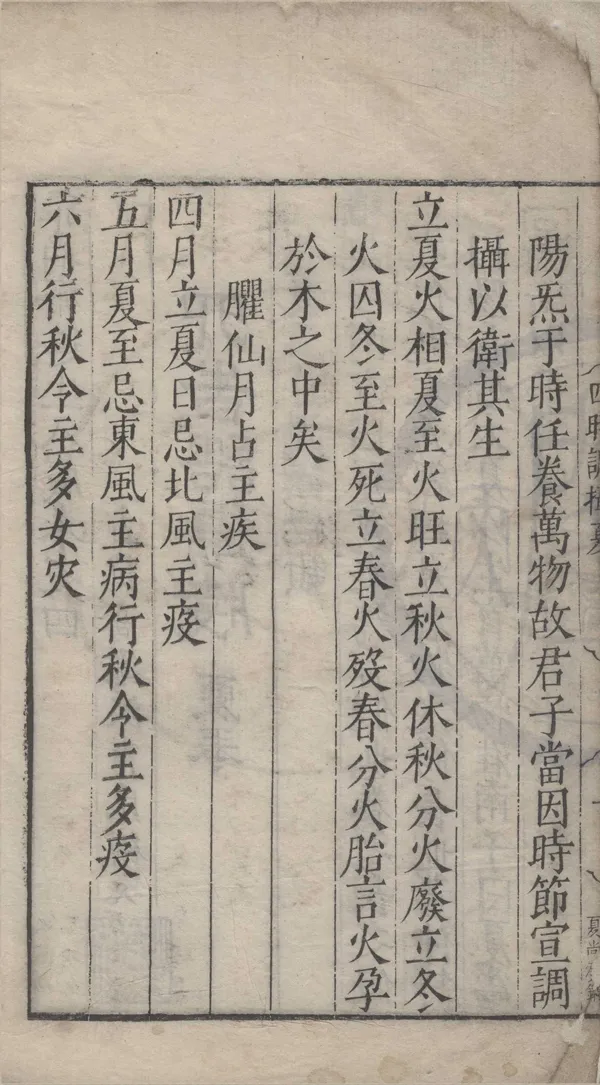 四時調攝
夏
陽炁于時任養萬物故君子當因時節宣調
攝以衛其生
立夏火相夏至火旺立秋火休秋分火廢立冬
火囚冬至火死立春火殁春分火胎言火孕
於木之中矣
臞仙月占主疾
四月立夏日忌北風主疫
五月夏至忌東風主病行秋令主多疫
六月行秋令主多女灾